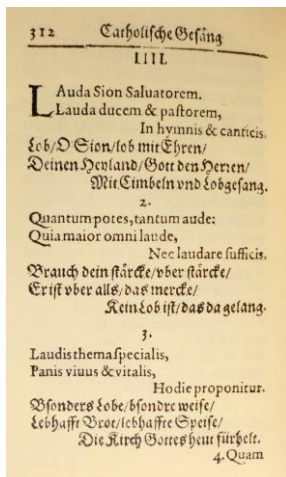 312 Catholische Gesäng
LIIII.
LAuda Sion Saluatorem.
Lauda ducem & pastorem,
In hymnis & canticis.
Lob/O Sion/lob mit Ehren/
Deinen Heyland/Gott den Herren/
Mit Cimbeln vnd Lobgesang.
2.
Quantum potes, tantum aude:
Quia maior omni laude,
Nec laudare sufficis.
Brauch dein stärcke/vber stärcke/
Er ist vber alls/das mercke/
Kein Lob ist/das da gelang.
3.
Laudis thema specialis,
Panis viuus & vitalis,
Hodie proponitur.
Bsonders Lobe/bsondre weise/
Lebhafft Brot/lebhaffte Speise/
Die Kirch Gottes heut fürhelt.
4. Quam